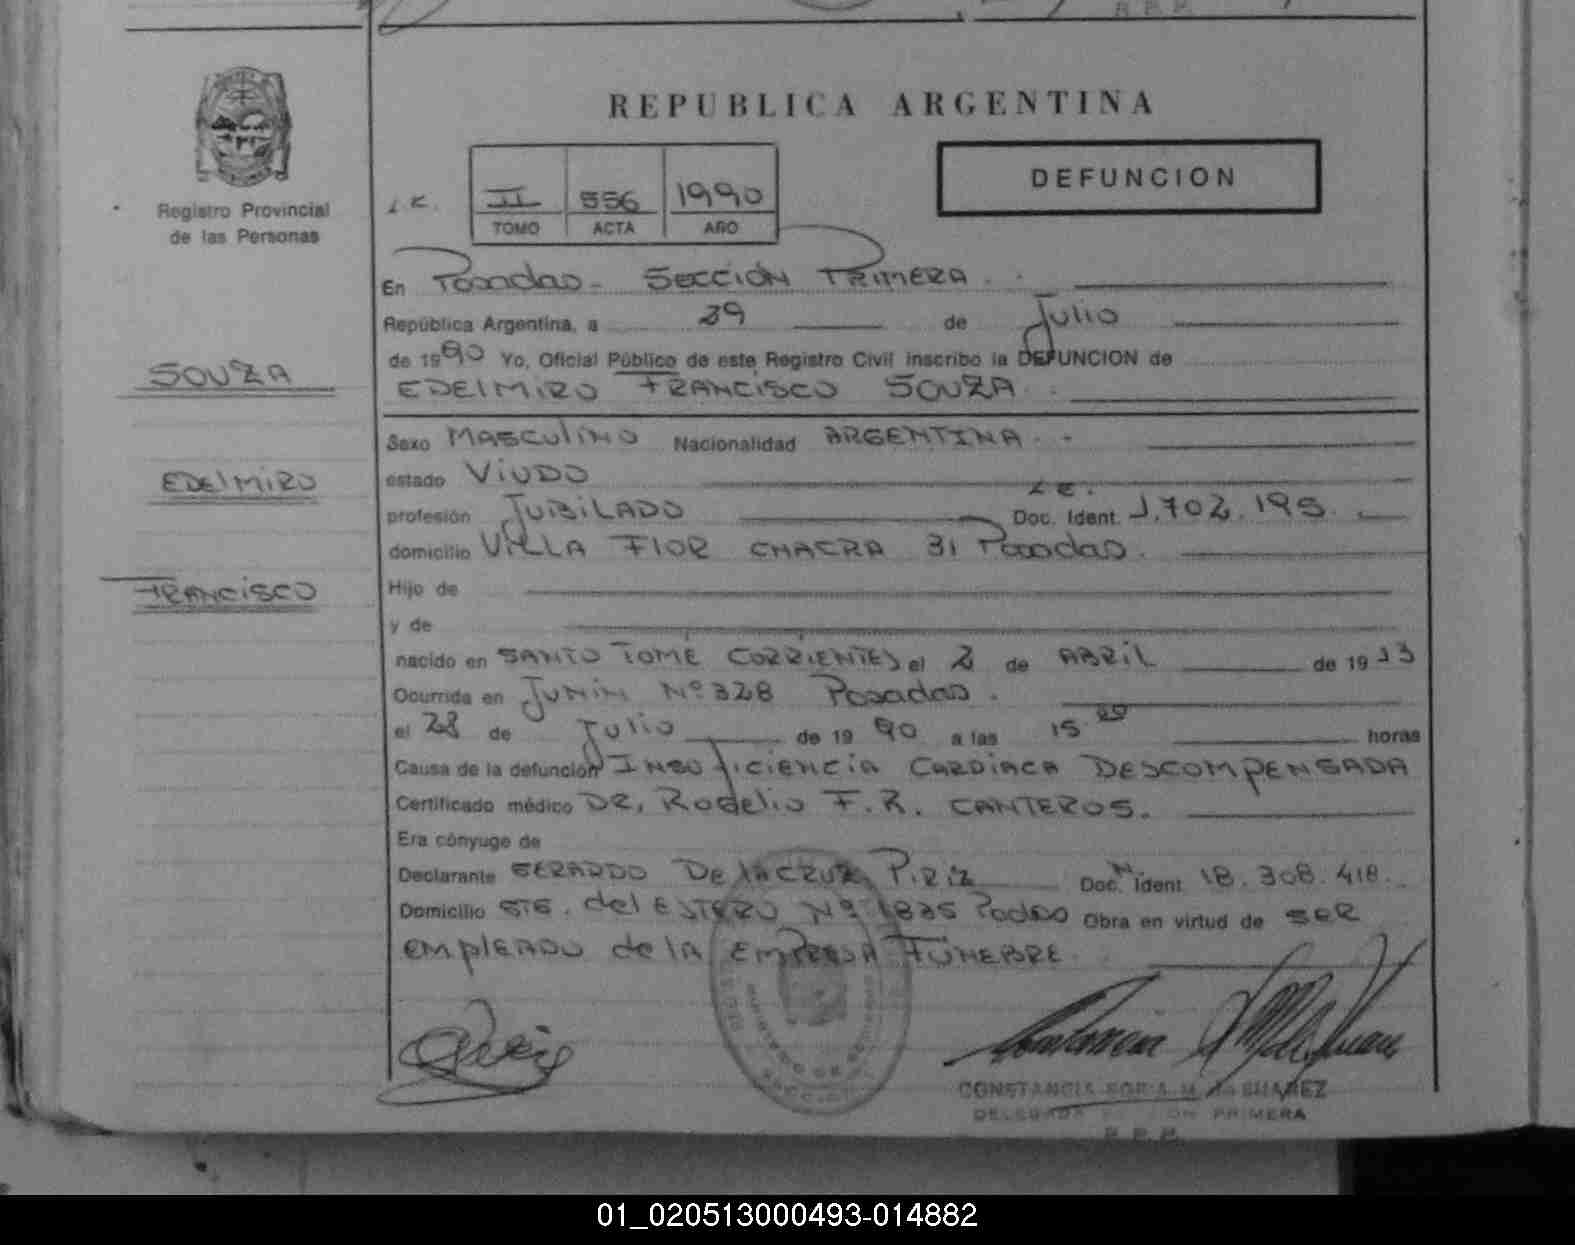 R.P.P.
REPUBLICA ARGENTINA
DEFUNCION
Registro Provincial
de las Personas
II 556 1990
TOMO ACTA AÑO
En Posadas - SECCIÓN PRIMERA.
República Argentina, a 29 de Julio
de 1990 Yo, Oficial Público de este Registro Civil inscribo la DEFUNCION de
EDELMIRO FRANCISCO SOUZA.
SOUZA
EDELMIRO
FRANCISCO
Sexo MASCULINO Nacionalidad ARGENTINA.-
estado VIUDO
L.E.
profesión JUBILADO Doc. Ident. 1.702.195.
domicilio VILLA FLOR CHACRA 31 Posadas.
Hijo de
y de
nacido en SANTO TOMÉ CORRIENTES el 2 de ABRIL de 1913
Ocurrida en JUNIN Nº 328 Posadas.
el 28 de Julio de 1990 a las 15 horas
Causa de la defunción INSUFICIENCIA CARDIACA DESCOMPENSADA
Certificado médico DR. ROGELIO F.R. CANTEROS.
Era cónyuge de
Declarante GERARDO DE LA CRUZ PIRIZ Doc. Ident 18.308.418.
Domicilio STG. del ESTERO Nº 1835 Obra en virtud de SER
EMPLEADO de LA EMPRESA FÚNEBRE.
CONSTANCIA M. de SUAREZ
DELEGADA SECCION PRIMERA
R.P.P.
01_020513000493-014882